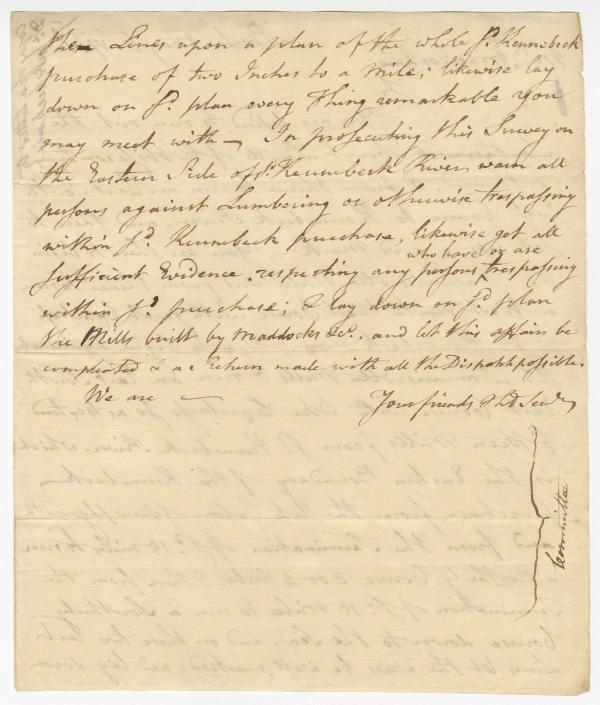 these Lines upon a plan of the whole sd. Kennebeck
purchase of two Inches to a mile; likewise lay
down on sd. plan every Thing remarkable you
may meet with — In prosecuting this Survey on
the Eastern Side of sd. Kennebeck River, warn all
persons against Lumbering or otherwise trespassing
within sd. Kennebeck purchase, likewise get all
sufficient Evidence respecting any persons who have or are trespassing
within sd. purchase; & lay down on sd. plan
the Mills built by Maddocks &c., and let this affair be
compleated & a Return made with all the Dispatch possible.
We are — Your friends & hb Servts
Committee